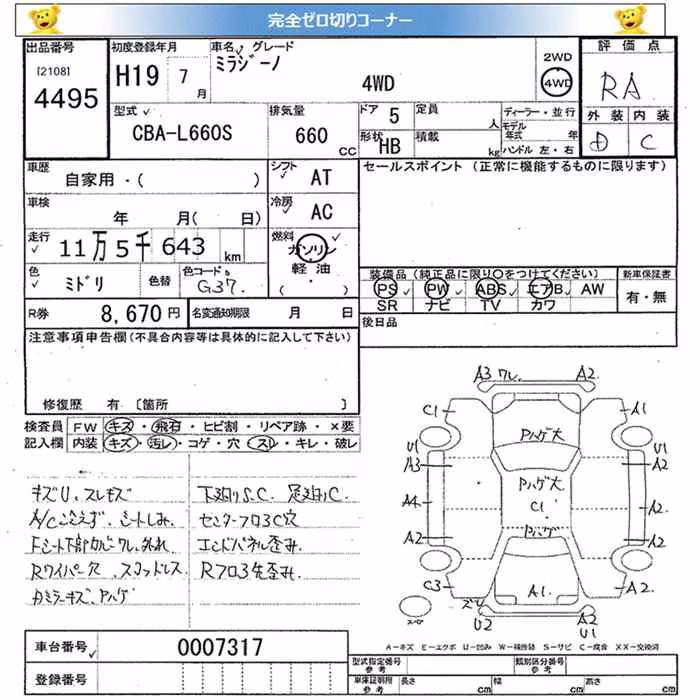 完全ゼロ切りコーナー
出品番号 初度登録年月 車名 グレード 評価点
[2108] H19 7月 ミラジーノ 2WD
4495 4WD 4WD RA
型式 排気量 ドア 5 定員 人 ディーラー・並行 外装 内装
CBA-L660S 660 CC 形状 HB 積載 kg モデル年式 年 D C
ハンドル 左・右
車歴 自家用・( ) シフト AT セールスポイント(正常に機能するものに限ります)
車検 年 月( 日) 冷房 AC
走行 11万5千643 km 燃料 ガソリン
軽油
( )
色 ミドリ 色替 色コード G37
装備品(純正品に限り〇をつけてください) 新車保証書
PS PW ABS エアB AW 有・無
SR ナビ TV カワ
R券 8,670円 名変通知期限 月 日 後日品
注意事項申告欄(不具合内容等は具体的に記入して下さい)
修復歴 有 〔箇所 〕
検査員 FW キズ・飛石・ヒビ割・リペア跡・×要
記入欄 内装 キズ・汚レ・コゲ・穴・スレ・キレ・破レ
キズU、スレキズ 下廻りS.C. 足廻りC.
A/C シートしみ. センターフロアC穴
Fシート下部カバーワレ、外れ エンドパネル歪み.
Rワイパー欠 Rフロア先歪み.
ミラーキズ、Pハゲ
A3 ワレ. A2
C1 A1
Pハゲ大
U1 U1
A3 A2
Pハゲ大
A4 C1 A2
A2 Pハゲ A2
C3 A1. A2.
スペア U2 A2
U1
A=キズ E=エクボ U=凹み W=補修跡 S=サビ C=腐食 XX=交換済
車台番号 0007317
登録番号
型式指定番号 参考 類別区分番号 参考
車庫証明用 参考 長さ cm 幅 cm 高さ cm